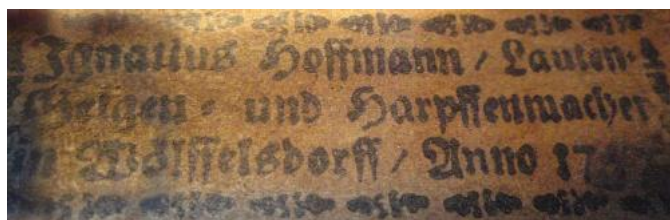 Ignatius Hoffmann / Lauten-
Geigen- und Harpffenmacher
in Wölffelsdorff / Anno 17